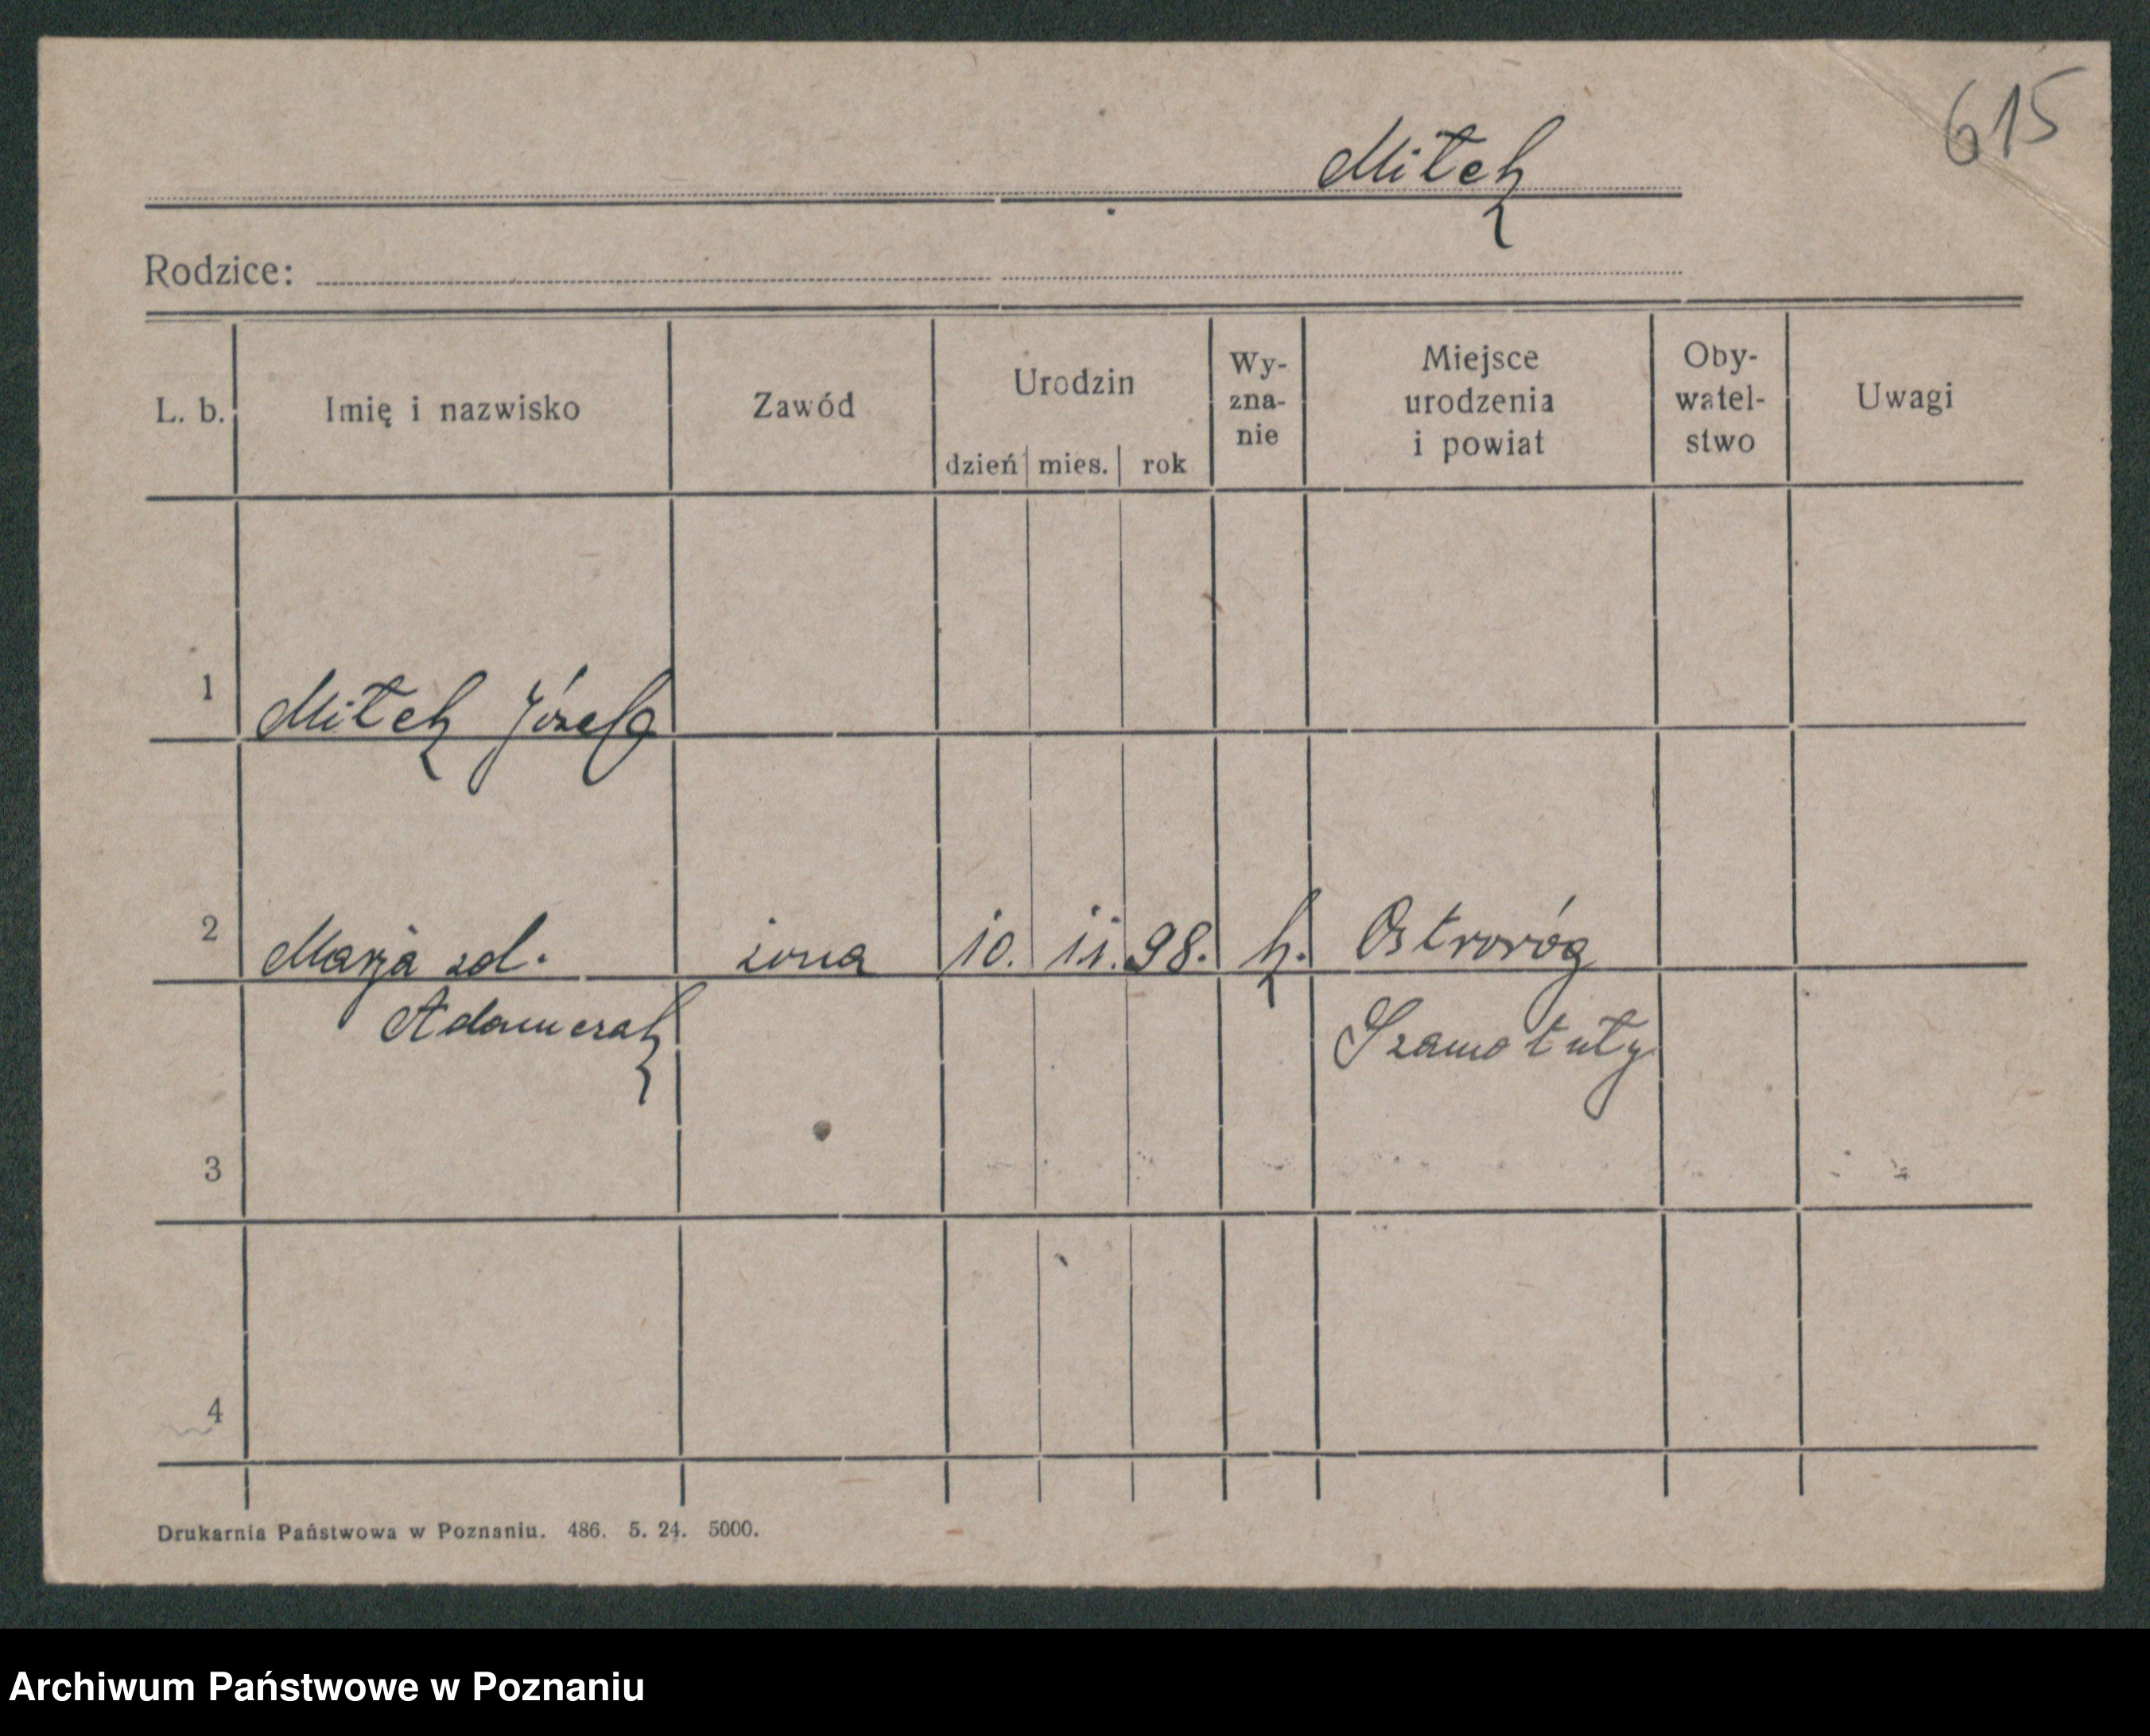 615
Mitek
Rodzice:
L. b. Imię i nazwisko Zawód Urodzin dzień mies. rok Wy-zna-nie Miejsce urodzenia i powiat Oby-watel-stwo Uwagi
1 Mitek Józef
2 Marja zd. żona 10. 11. 98. k. Ostroróg
Adamczak Szamotuły
3
4
Drukarnia Państwowa w Poznaniu. 486. 5. 24. 5000.
Archiwum Państwowe w Poznaniu